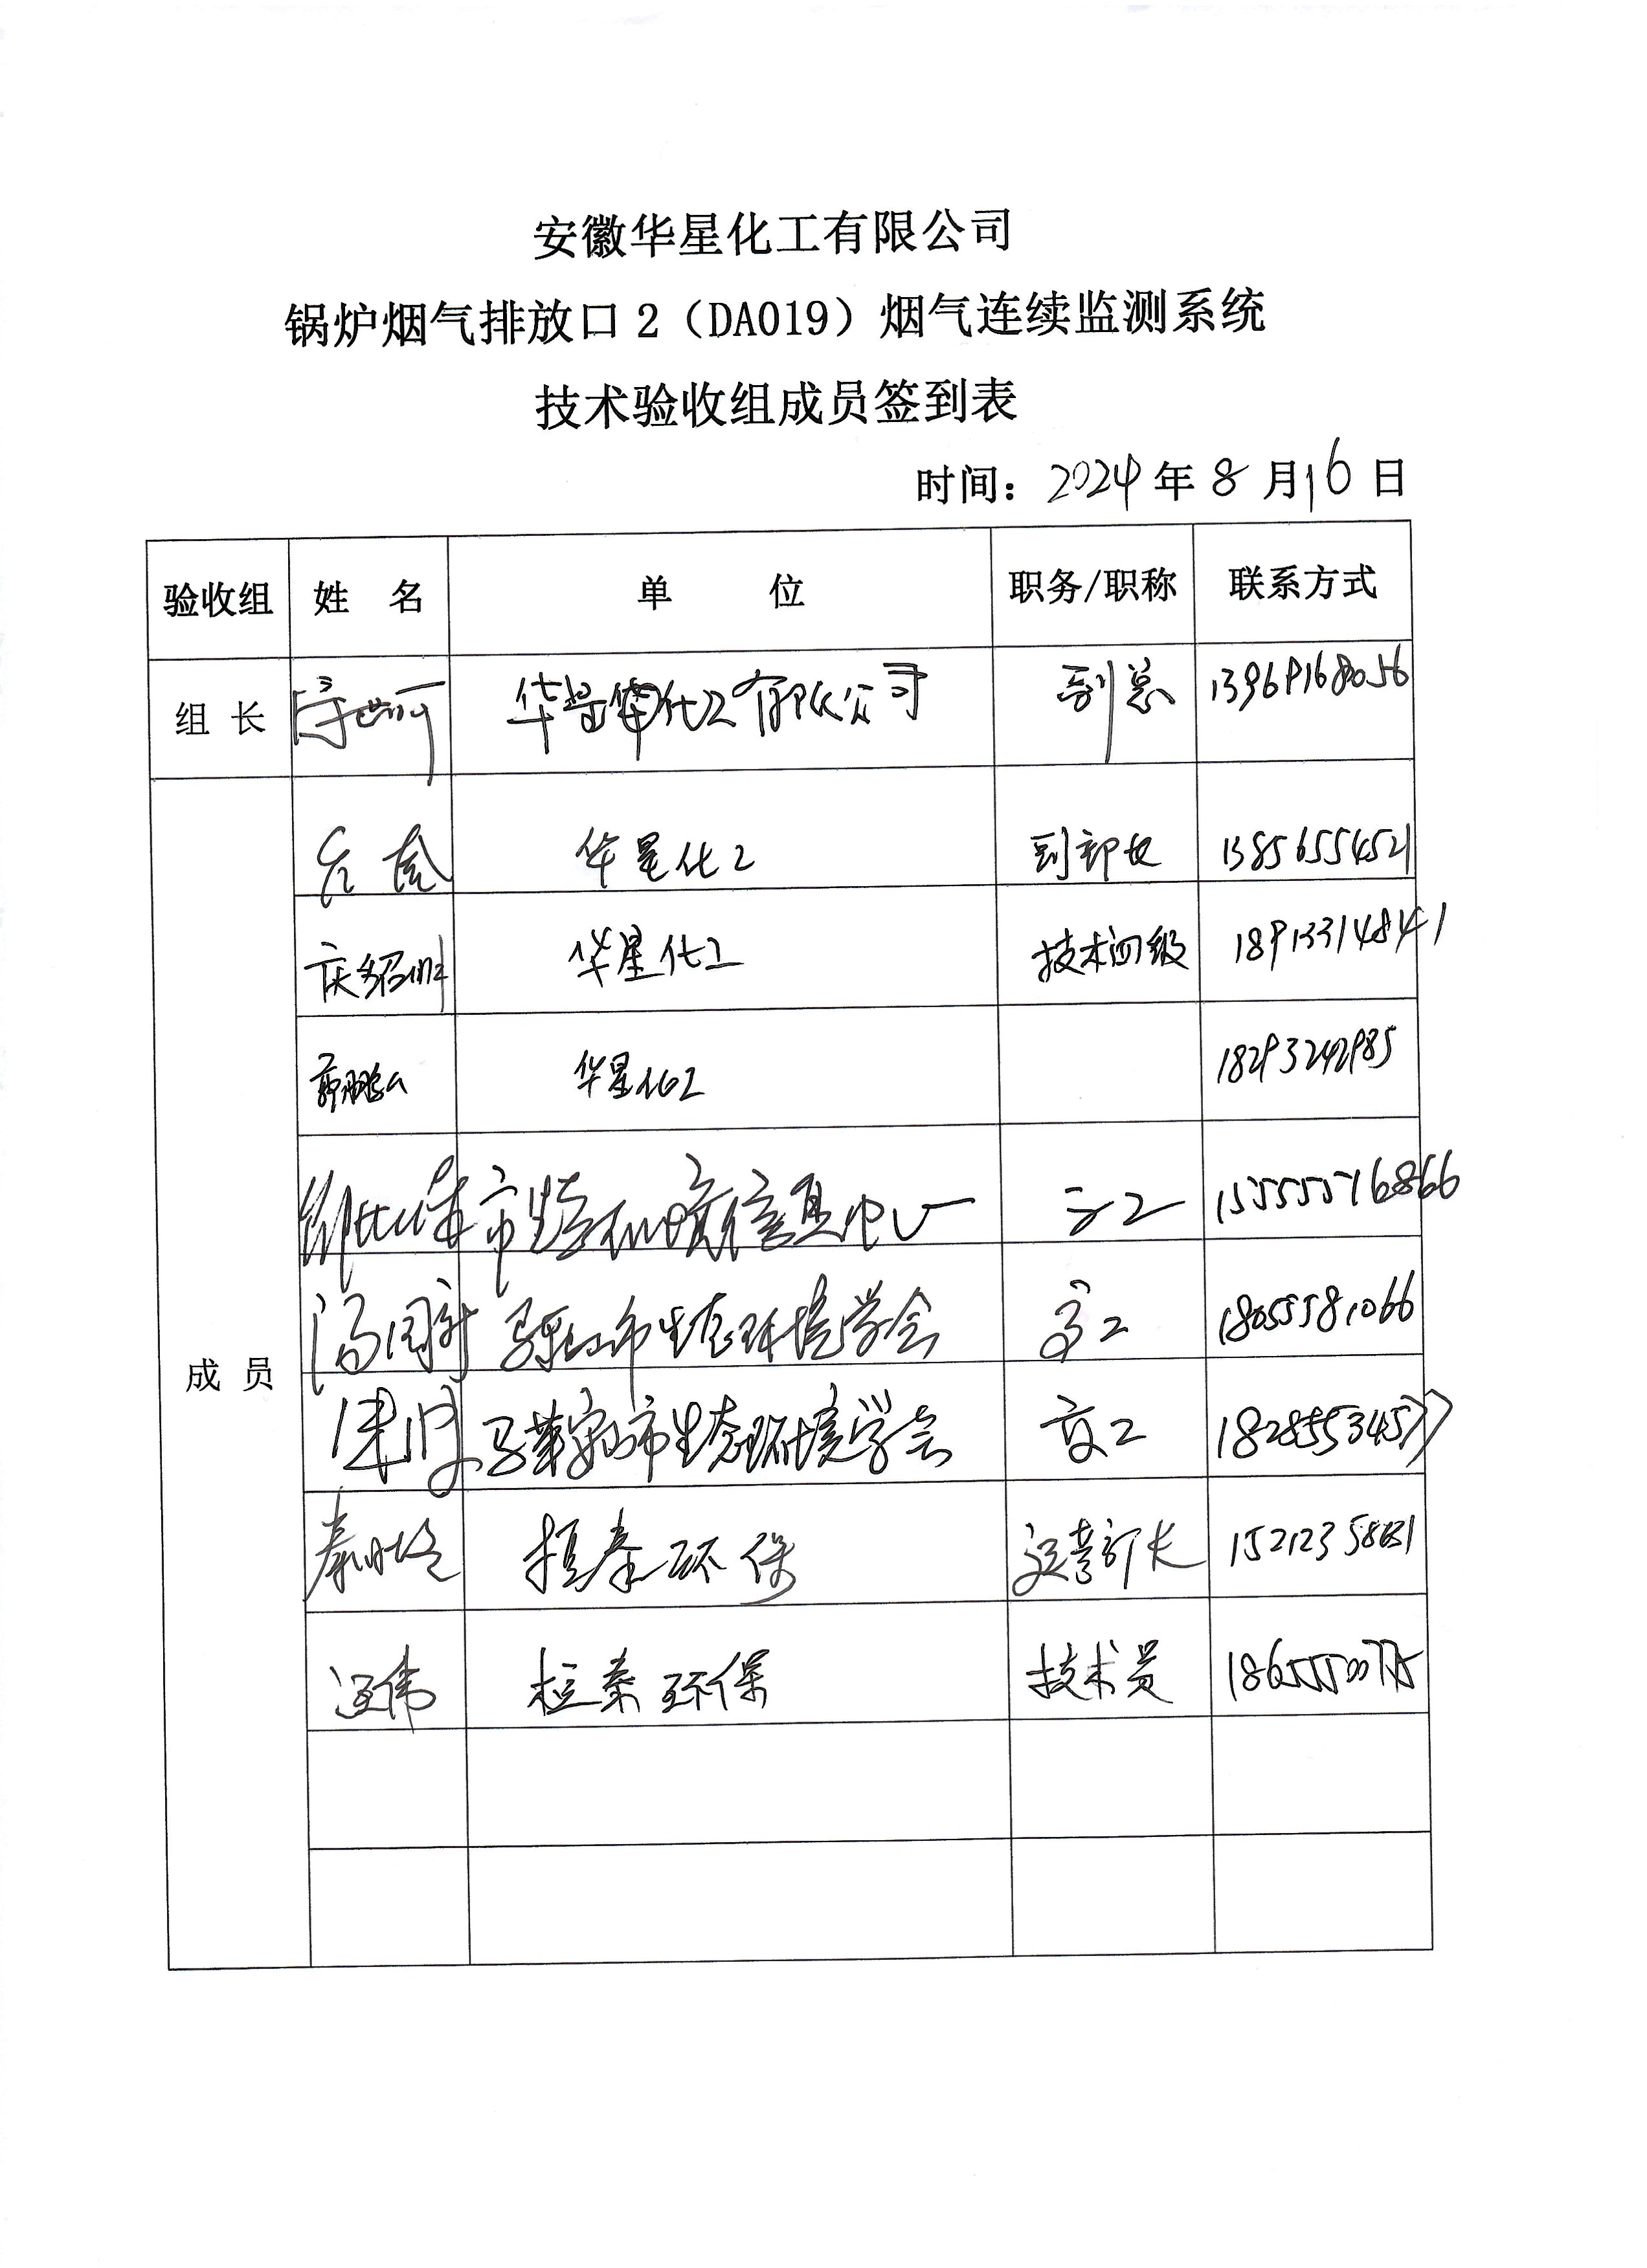 安徽华星化工有限公司
锅炉烟气排放口2（DA019）烟气连续监测系统
技术验收组成员签到表
时间：2024年8月16日
验收组 姓 名 单 位 职务/职称 联系方式
组 长 华星化工有限公司 副总 13969168056
华星化工 副部长 13856554521
华星化工 技术四级 18913314841
华星化工 18293242985
市生态环境信息中心 15555516866
汤 马鞍山市生态环境学会 高工 18055581066
成 员
马鞍山市生态环境学会 高工 18285534577
秦 环保 运营部长
汪伟 环保 技术员